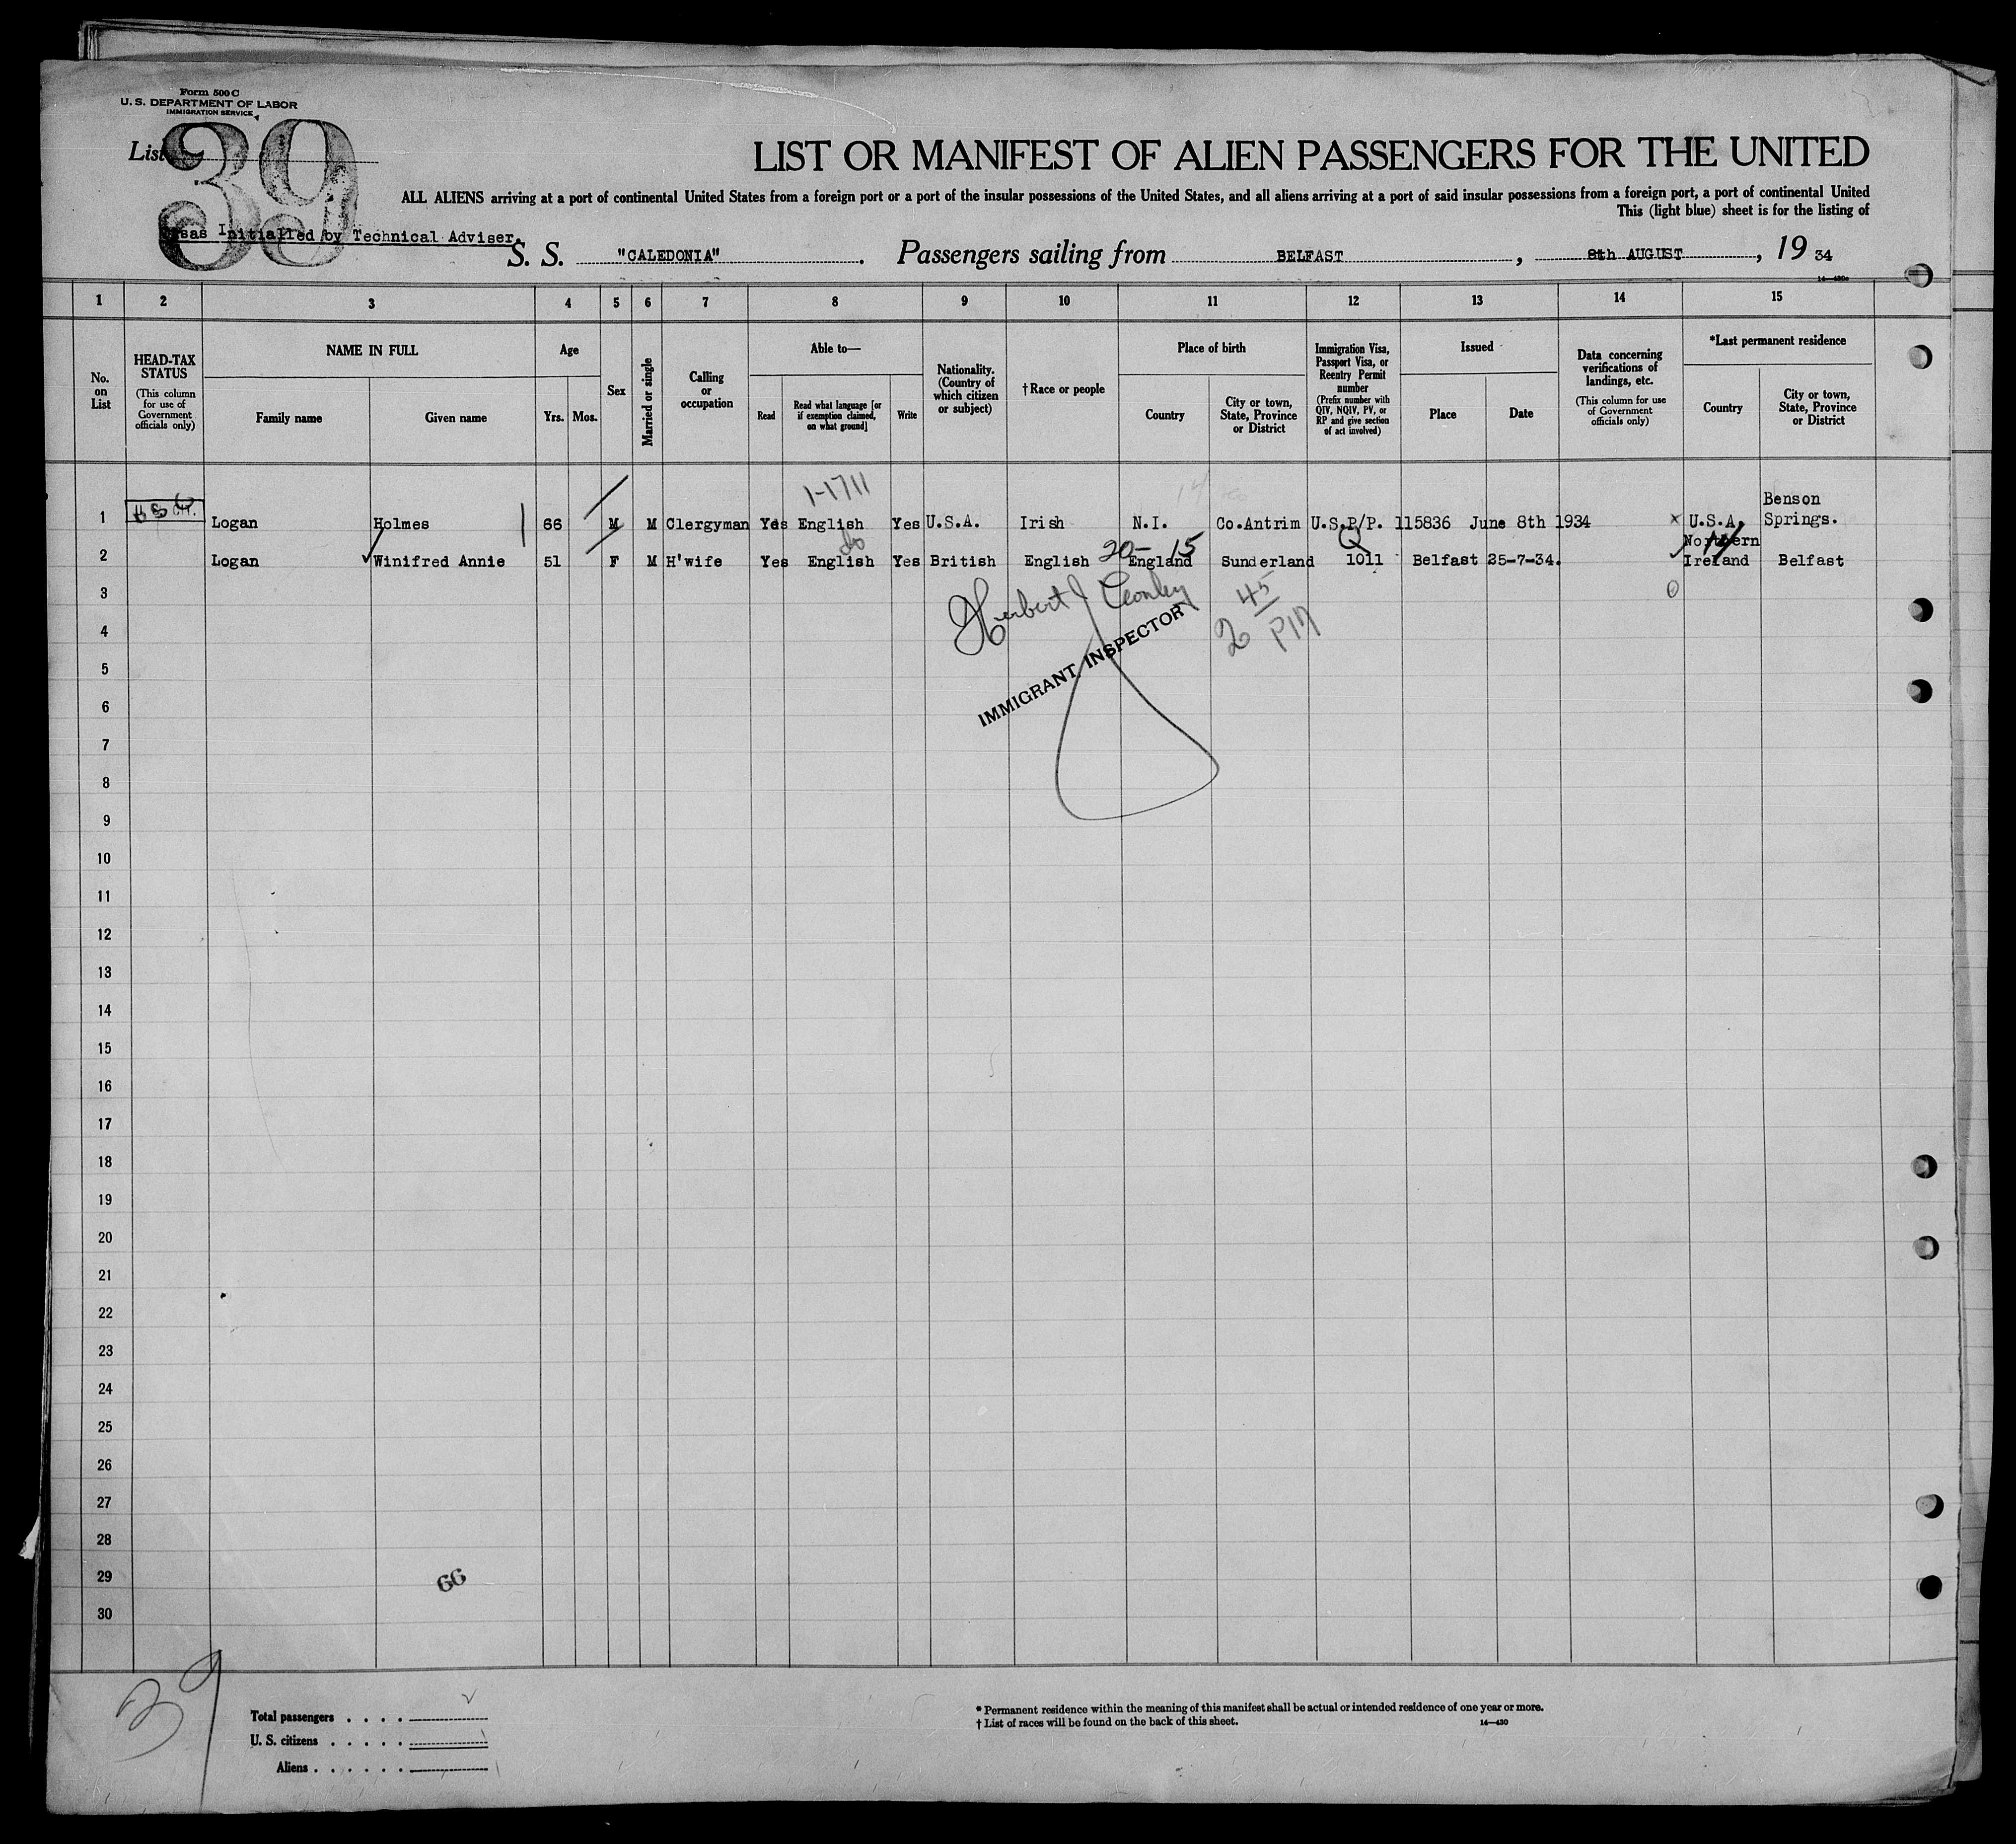 Form 500 C
U. S. DEPARTMENT OF LABOR
IMMIGRATION SERVICE
List 39
LIST OR MANIFEST OF ALIEN PASSENGERS FOR THE UNITED
ALL ALIENS arriving at a port of continental United States from a foreign port or a port of the insular possessions of the United States, and all aliens arriving at a port of said insular possessions from a foreign port, a port of continental United
This (light blue) sheet is for the listing of
Visas Initialled by Technical Adviser.
S. S. "CALEDONIA". Passengers sailing from BELFAST, 8th AUGUST, 19 34
1 2 3 4 5 6 7 8 9 10 11 12 13 14 15
No. on List
HEAD-TAX STATUS
(This column for use of Government officials only)
NAME IN FULL
Family name Given name
Age
Yrs. Mos.
Sex
Married or single
Calling or occupation
Able to—
Read
Read what language [or if exemption claimed, on what ground]
Write
Nationality. (Country of which citizen or subject)
† Race or people
Place of birth
Country
City or town, State, Province or District
Immigration Visa, Passport Visa, or Reentry Permit number
(Prefix number with QIV, NQIV, PV, or RP and give section of act involved)
Issued
Place Date
Data concerning verifications of landings, etc.
(This column for use of Government officials only)
*Last permanent residence
Country
City or town, State, Province or District
1-1711
1 Logan Holmes 66 M M Clergyman Yes English Yes U.S.A. Irish N.I. Co.Antrim U.S.P/P. 115836 June 8th 1934 x U.S.A. Benson Springs.
2 Logan Winifred Annie 51 F M H'wife Yes English Yes British English England Sunderland Q 1011 Belfast 25-7-34. Northern Ireland Belfast
20- 15
14
Herbert J
IMMIGRANT INSPECTOR
2 45
PM
3
4
5
6
7
8
9
10
11
12
13
14
15
16
17
18
19
20
21
22
23
24
25
26
27
28
29
30
66
39
Total passengers . . . .
U. S. citizens . . . . .
Aliens . . . . . .
* Permanent residence within the meaning of this manifest shall be actual or intended residence of one year or more.
† List of races will be found on the back of this sheet.
14—430